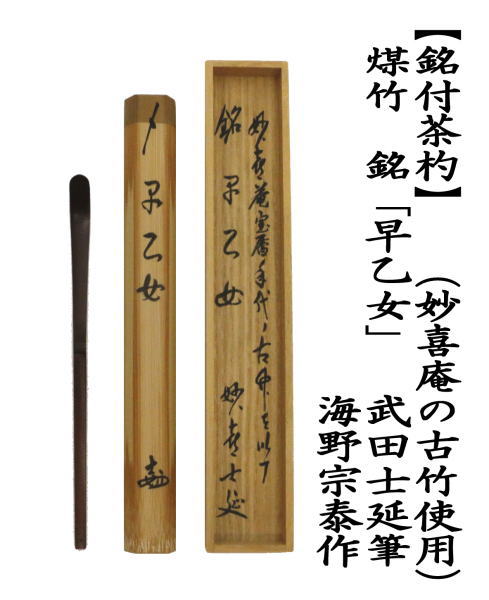 【銘付茶杓】(妙喜庵の古竹使用)
煤竹 銘「早乙女」 武田士延筆
海野宗泰作
妙喜庵宝暦年代ノ古竹を以て
銘 早乙女 妙喜士延
〆 早乙女